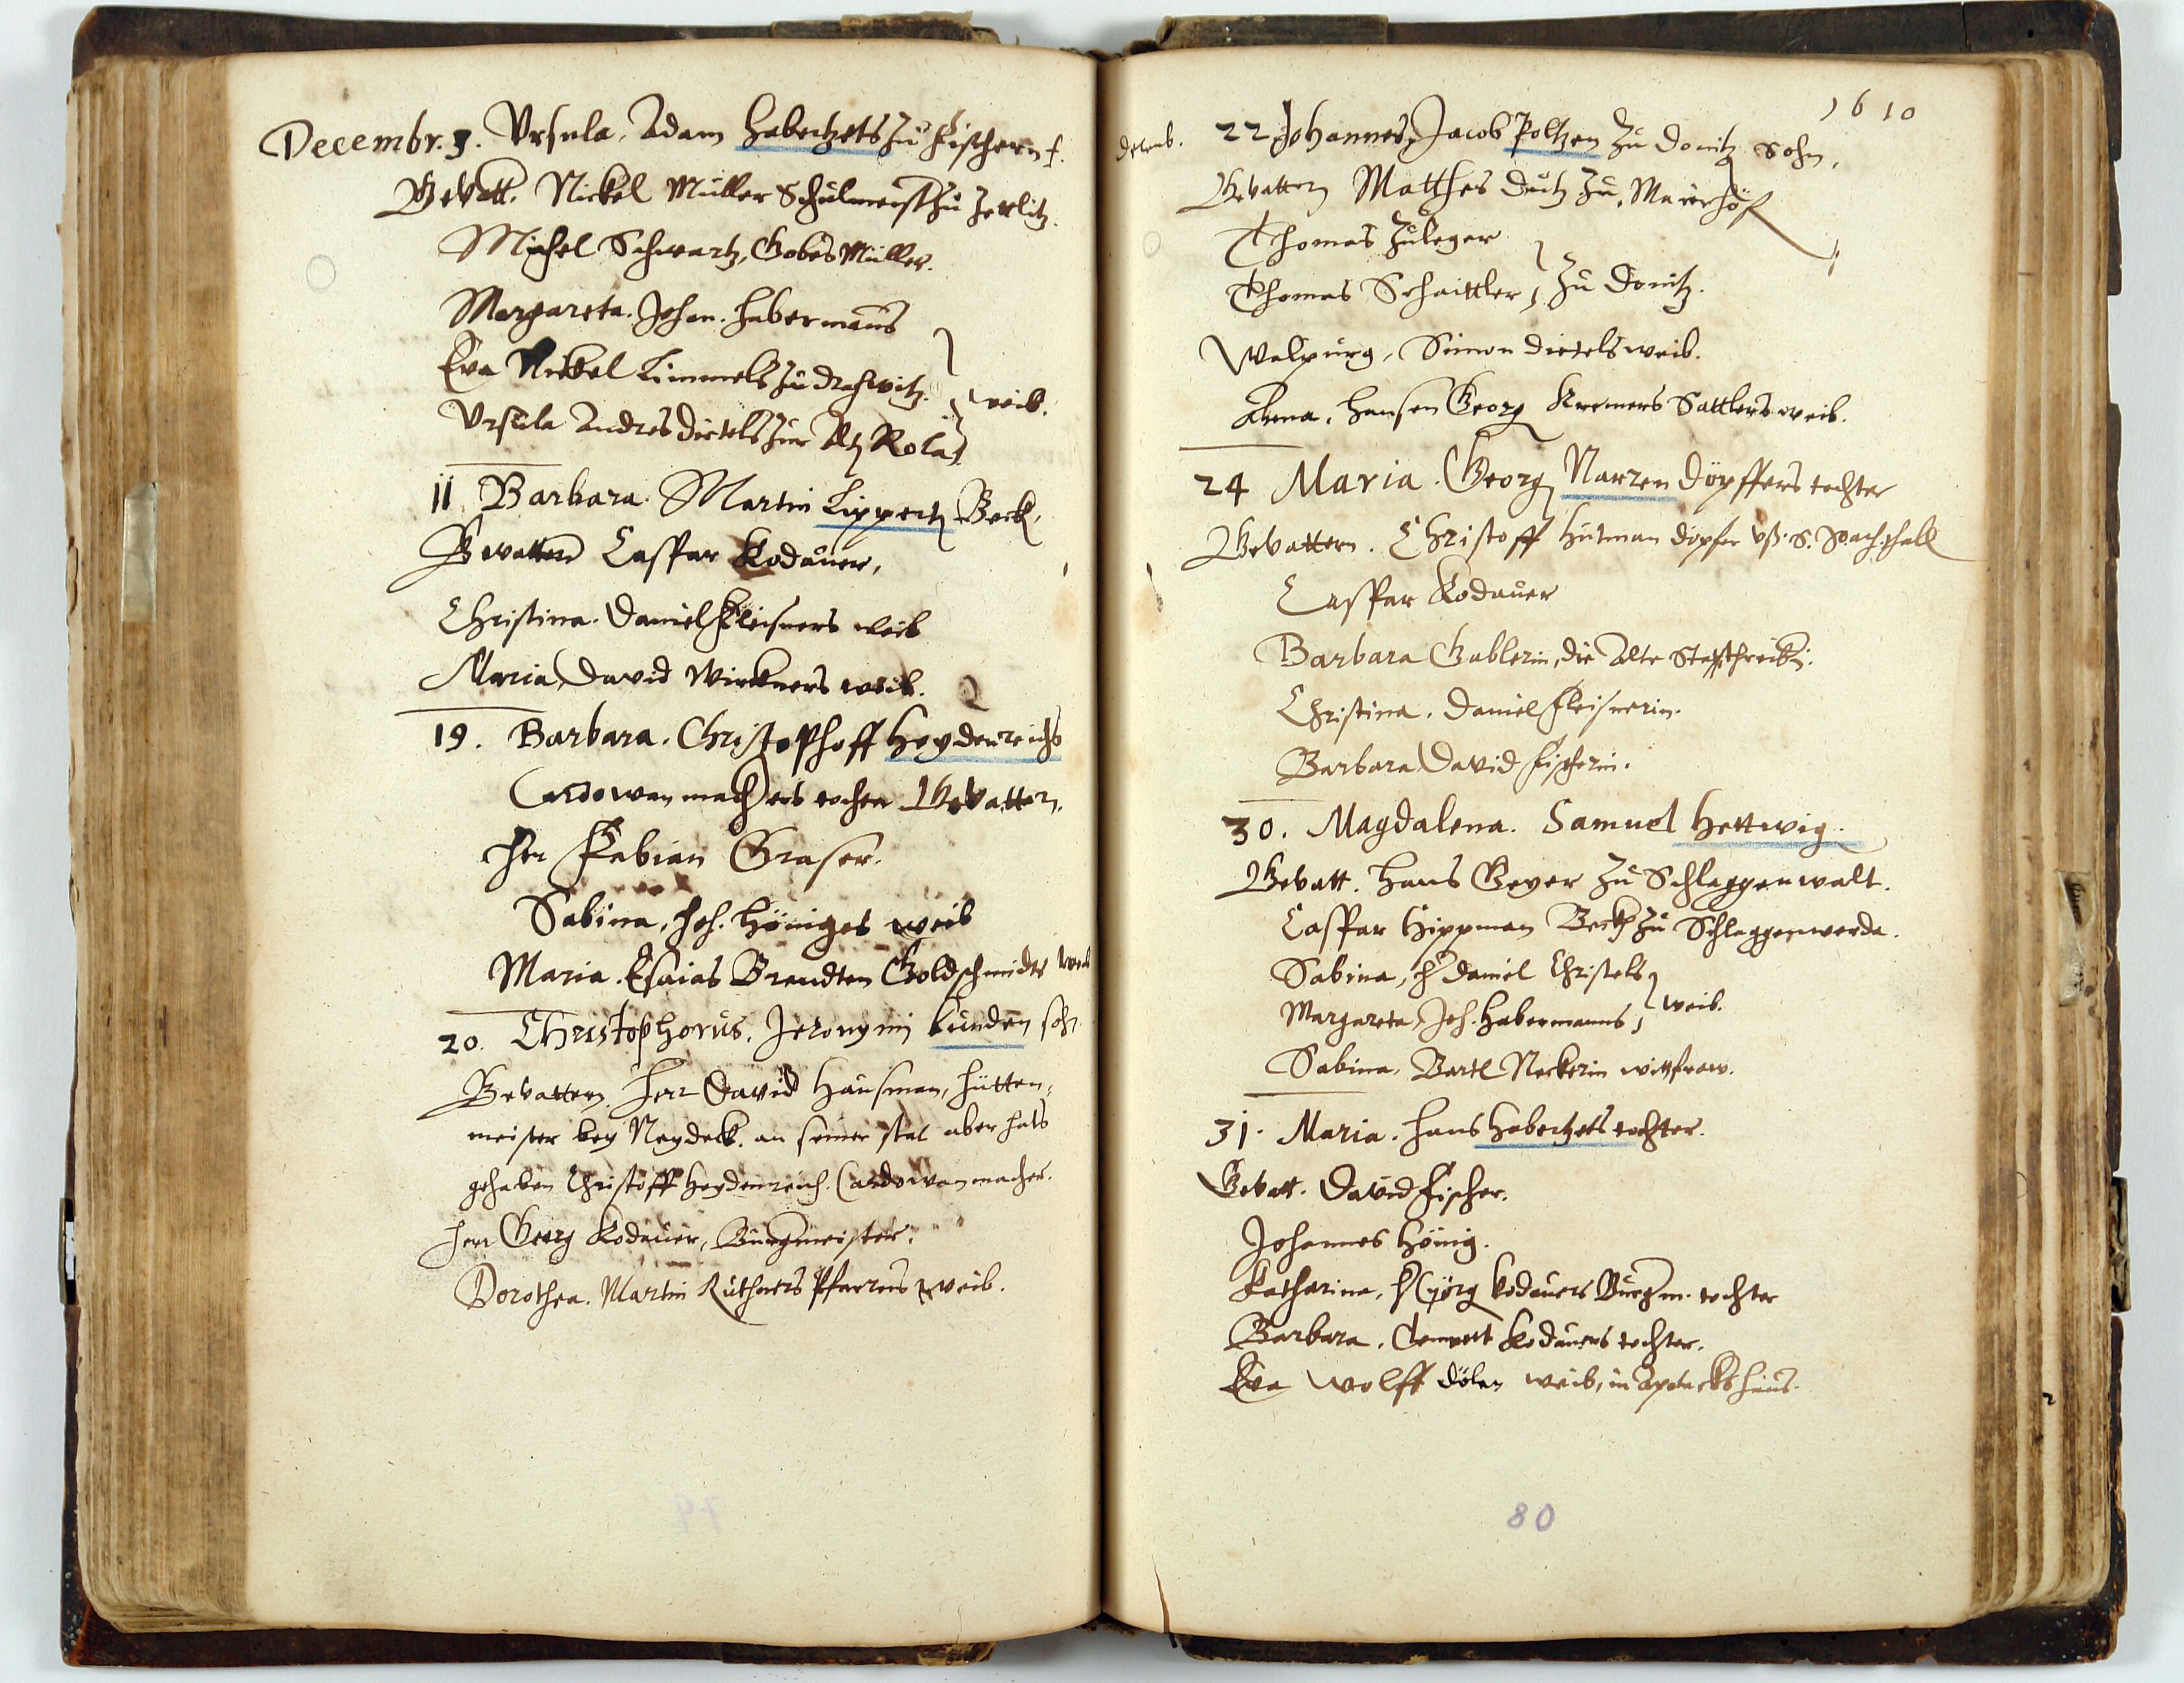 Decembr. 3. Vrsula, Adam Habertzets zu Fischern f.
Gevatt. Nickel Müller Schulmeist zu Zetlitz.
Michel Schwartz, Gobes Müller.
Margareta. Johan. Habermans
Eva Nickel Limmels zu Drahwitz. weib.
Vrsula Andres Dietels zur Alt Rola
11 Barbara. Martin Lippert Beck,
Gevattern Caspar Kodauer,
Christina. Daniel Fleisners weib
Maria, David Wirckners weib.
19. Barbara. Christophoff Heydenreichs
Cardowanmachers tochter Gevattern.
Her Fabian Graser.
Sabina, Joh. Höniges weib
Maria. Esaias Brendten Goldschmidts weib
20. Christophorus. Jeronymi Kunden sohn
Gevattern. Herr David Hausman, Hütten-
meister bey Neydeck. an seiner stat aber hats
gehaben Christoff Heydenreich. Cardowanmacher.
Herr Georg Kodauer, Burgmeister.
Dorothea. Martin Küthners Pfarrers weib.
1610
Decemb. 22 Johannes, Jacob Poltzen zu Donitz Sohn.
Gevattern Matthes Dutz zu Maierhöf
Thomas Züleger
Thomas Schaittler, zu Donitz.
Walpurg, Simon Dietels weib.
Anna, Hansen Georg Kremers Sattlers weib.
24 Maria. Georg Narren Döpffers tochter
Gevattern. Christoff Hutman döpfer vß S. Joachthall
Caspar Kodauer
Barbara Gablerin, die Alte
Christina, Daniel Fleisnerin.
Barbara David Fischerin.
30. Magdalena. Samuel Hettwig.
Gevatt. Hans Geyer zu Schlaggenwalt.
Caspar Hippman Beck zu Schlaggenwerda.
Sabina, H Daniel Christels
Margareta, Joh. Habermanns, weib.
Sabina, Bartl Neckerin wittfraw.
31. Maria. Hans Habertzets tochter.
Gevatt. David Fischer.
Johannes Hönig.
Katharina, H Görg Kodauers Burgm. tochter
Barbara. Clement Kodauers tochter.
Eva Wolff Dölen weib, in Apoteckshaus.
80